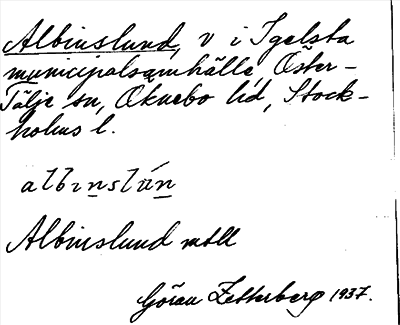 Albinslund, v i Igelsta
municipalsamhälle, Öster-
Tälje sn, Öknebo hd, Stock-
holms l.
albinslún
Albinslund mtll
Göran Zetterberg 1937.